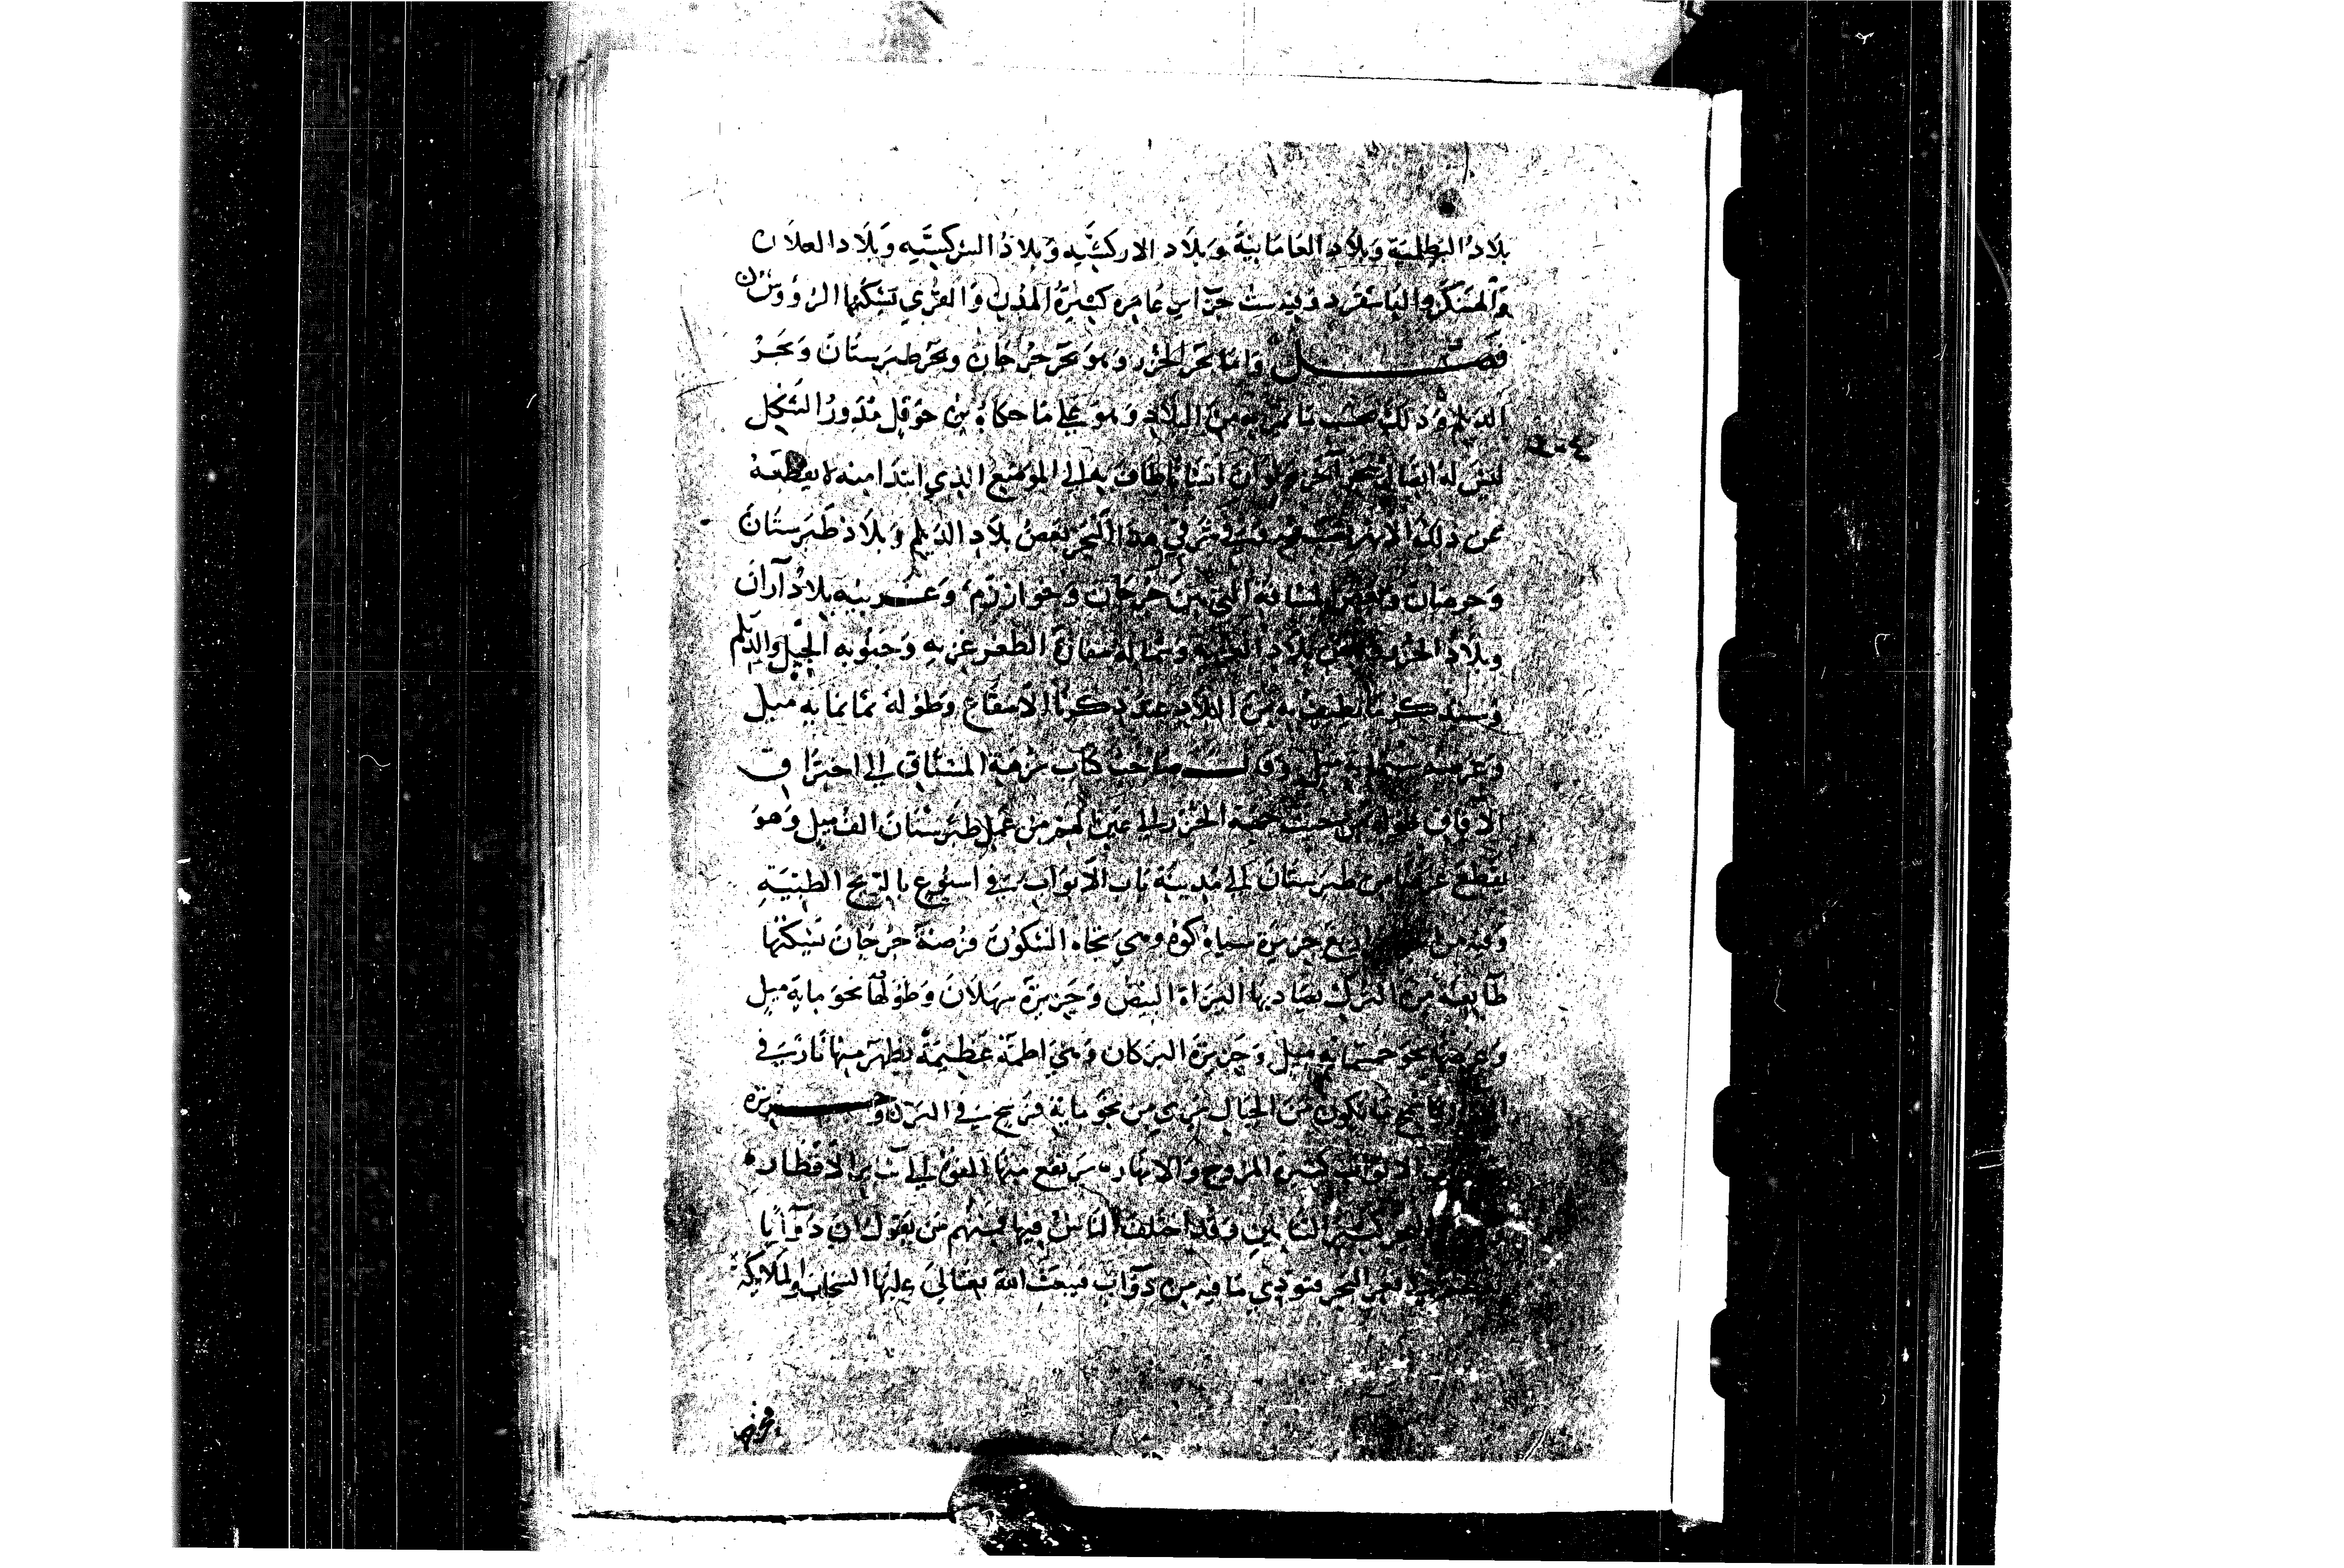 بلاد البطلمية وبلاد العامانية وبلاد الاركشيه وبلاد السركسيه وبلاد العلان
والهنكر والباشقرد وفيه ست جزاير عامره كثيرة المدن والقري تسكنها الروس
فصل واما بحر الخزر وهو بحر جرجان وبحر طبرستان وبحر
الديلم وذلك بحسب ما يمر به من البلاد وهو علي ما حكاه بن حوقل مدور الشكل
ليس له اتصال ببحر اخر ولو ان انسانا طاف به الي الموضع الذي ابتدا منه لا يقطعه
عن ذلك الا نهر يقع فيه في شرقي هذا البحر بعض بلاد الديلم وبلاد طبرستان
وجرجان وبعض المسافة التي بين جرجان وخوارزم وغربيه بلاد آران
وبلاد الخزر وبعض بلاد الغزيه وشماله مفازة الغزيه وجنوبه الجيل والديلم
وسنذكر ما يطيف به من البلاد عند ذكرنا الاصقاع وطوله ثمانماية ميل
وعرضه ستماية ميل وقال صاحب كتاب نزهة المشتاق الي اختراق
الافاق طوله من حيث الخزر الي عين الهم من عمل طبرستان الف ميل وهو
يقطع عرضا من طبرستان الي مدينة باب الابواب في اسبوع بالريح الطيبة
وفيه من الجزاير اربع جزيرة سياه كوه وهي تجاه السكون فرضة جرجان تسكنها
طايفة من الترك يصاد بها البزاة البيض وجزيرة سهلان وطولها نحو ماية ميل
وعرضها نحو خمسماية ميل وجزيرة البركان وهي اطمة عظيمة يظهر منها نار في
ما يكون من الجبال تري من نحو ماية فرسخ في البر وجزيرة
الابواب كثيرة المروج والانهار يرتفع منها الفوه الي ساير الاقطار
البحر كثير التنانين وقد اختلف الناس فيها فمنهم من يقول ان دوابا
في قعر البحر فتوذي ما فيه من دواب فيبعث الله تعالي عليها السحاب والملايكة